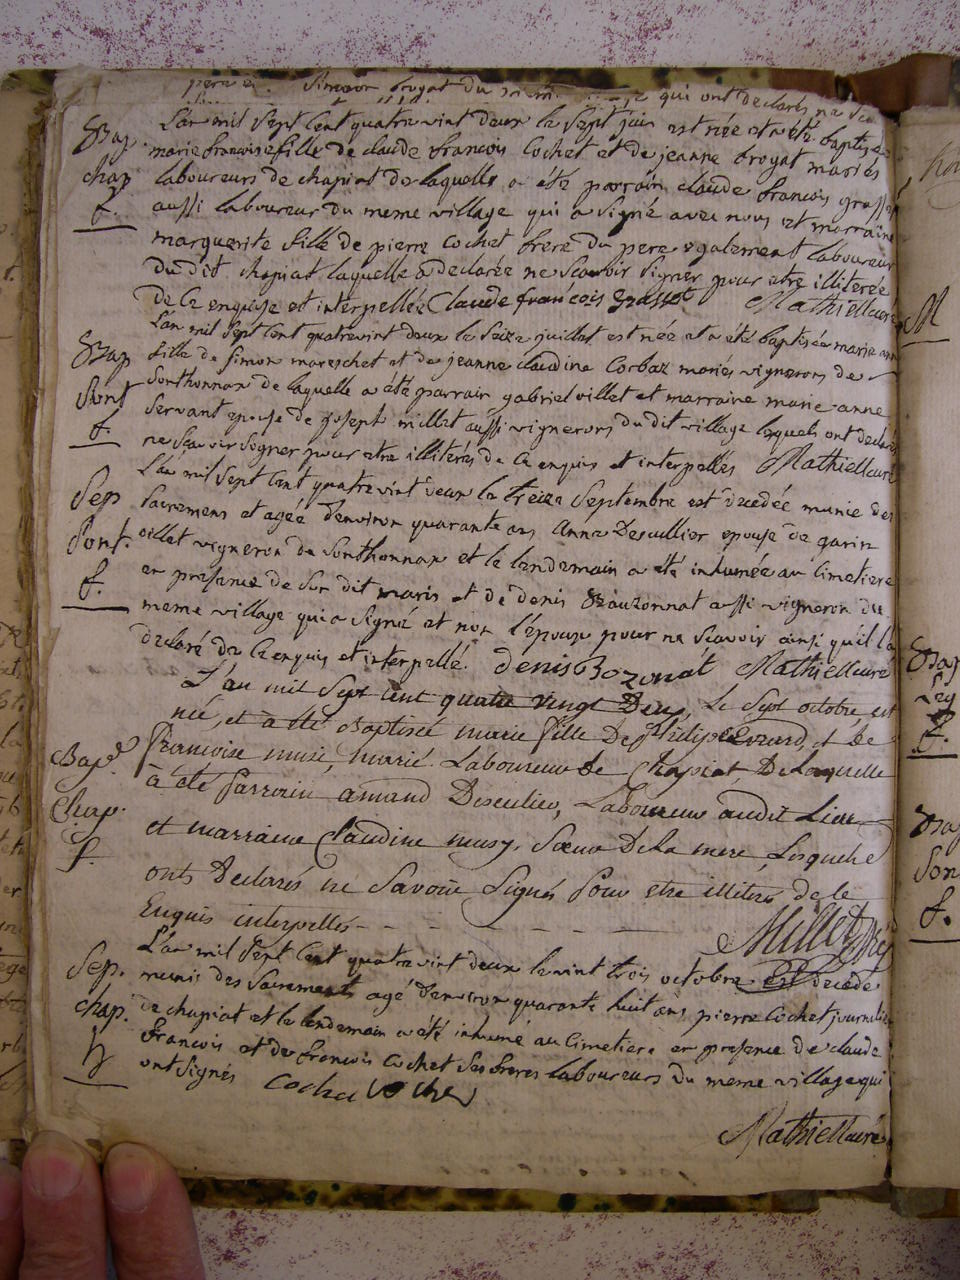 qui ont declarés
Bap. L'an mil sept cent quatre vint deux le sept juin est née et a été baptisée
chap marie francoise fille de claude francois Cochet et de jeanne brogat mariés
f. laboureurs de chapiat de laquelle a été parrain claude francois grosset
aussi laboureur du meme village qui a signé avec nous et marraine
marguerite fille de pierre Cochet frere du pere egalement laboureur
du dit chapiat laquelle a declarée ne scavoir signer pour etre illiterée
de ce enquise et interpellée Claude francois grosset Mathiellcuré
L'an mil sept cent quatrevint deux le seize juillet est née et a été baptisée marie ann
Bap fille de simon mareschet et de jeanne claudine Corbaz mariés vignerons de
Sont Sonthonnax de laquelle a été parrain gabriel villet et marraine marie anne
f. Servant epouse de joseph millet aussi vignerons du dit village lesquels ont declarés
ne scavoir signer pour etre illiterés de ce enquis et interpellés Mathiellcuré
L'an mil sept cent quatre vint deux le treize Septembre est decedée munie des
Sep sacremens et agée d'environ quarante ans Anne Descullier epouse de garin
Sont. oillet vigneron de Sonthonnax et le lendemain a été inhumée au Cimetiere
f. en presence de son dit maris et de denis Bauzonnat aussi vigneron du
meme village qui a signé et non l'époux pour ne scavoir ainsi qu'il l'a
declaré de ce enquis et interpellé. denis Bozonat Mathiellcuré
L'an mil sept cent quatre vingt Deux, le sept octobre est
née, et à été Baptisée marie fille De philipe Evrard, et de
Bapé francoise musi, marié Laboureur de Chapiat, De laquelle
Chap. à été parrain amand Desculieu, Laboureur audit Lieu
f. et marraine Claudine musy, Sœur De la mere Lesquels
onts Declarés ne Savoir Signés pour etre illiterés de le
Enquis interpellés - - - - - Millet
L'an mil sept cent quatre vint deux le vint trois octobre est decedé
Sep. munis des sacrements agé d'environ quarante huit ans, pierre Cochet journalier
chap. de chapiat et le lendemain a été inhumé au Cimetiere en presence de claude
h francois et de francois Cochet ses freres laboureurs du meme village qui
ont signés Cochet Cochet
Mathiellcuré
M
Bap
f.
Bap
Son
f.